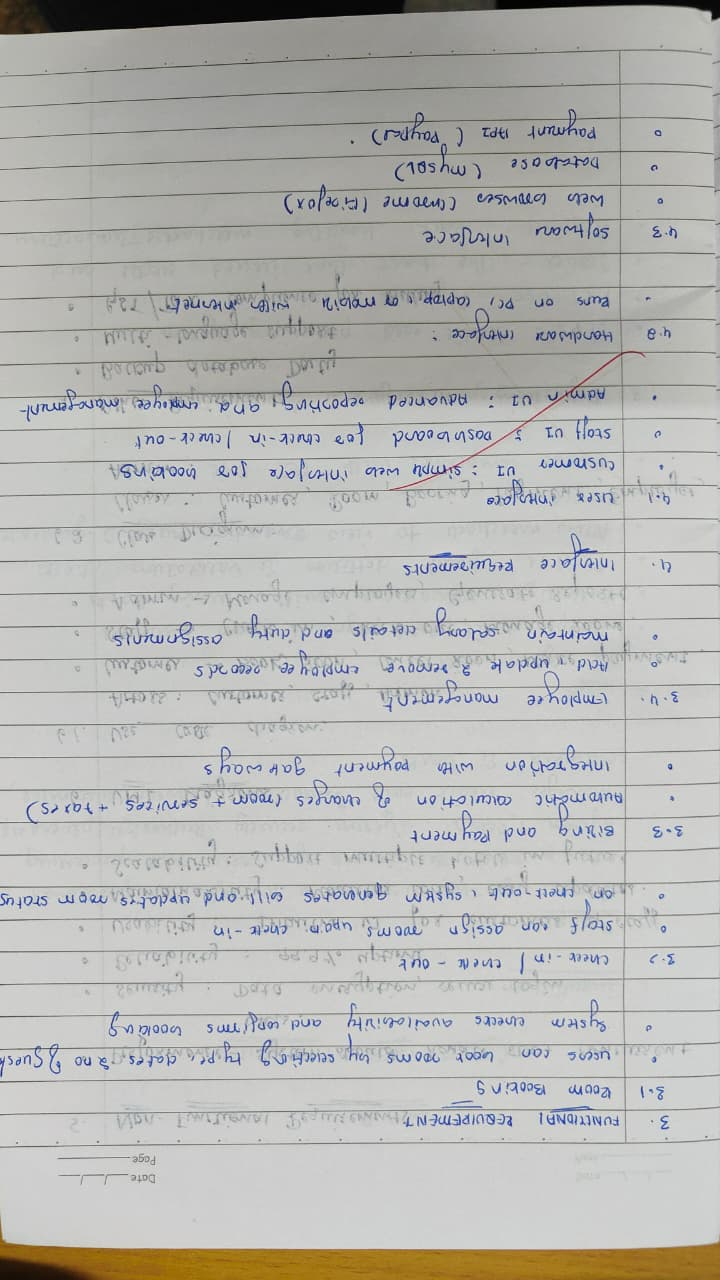 Date
Page
3. FUNCTIONAL REQUIREMENT
3.1 Room Booking
users can book rooms by selecting type, dates & no of guests
System checks availability and confirms booking
3.2 check-in / check-out
staff can assign rooms upon check-in
on check-out, system generates bill and updates room status
3.3 Billing and Payment
Automatic calculation of charges (room + services + taxes)
Integration with payment gateways
3.4. Employee management
Add, update & remove employee records
maintain salary details and duty assignments
4. Interface requirements
4.1 User interface
customer UI : simple web interface for booking
staff UI : Dashboard for check-in / check-out
Admin UI : Advanced reporting and employee management
4.2 Hardware interface :
Runs on PC, laptop, or mobile with internet
4.3 Software interface
web browser (chrome / Firefox)
Database (mySQL)
Payment API (Paypal)